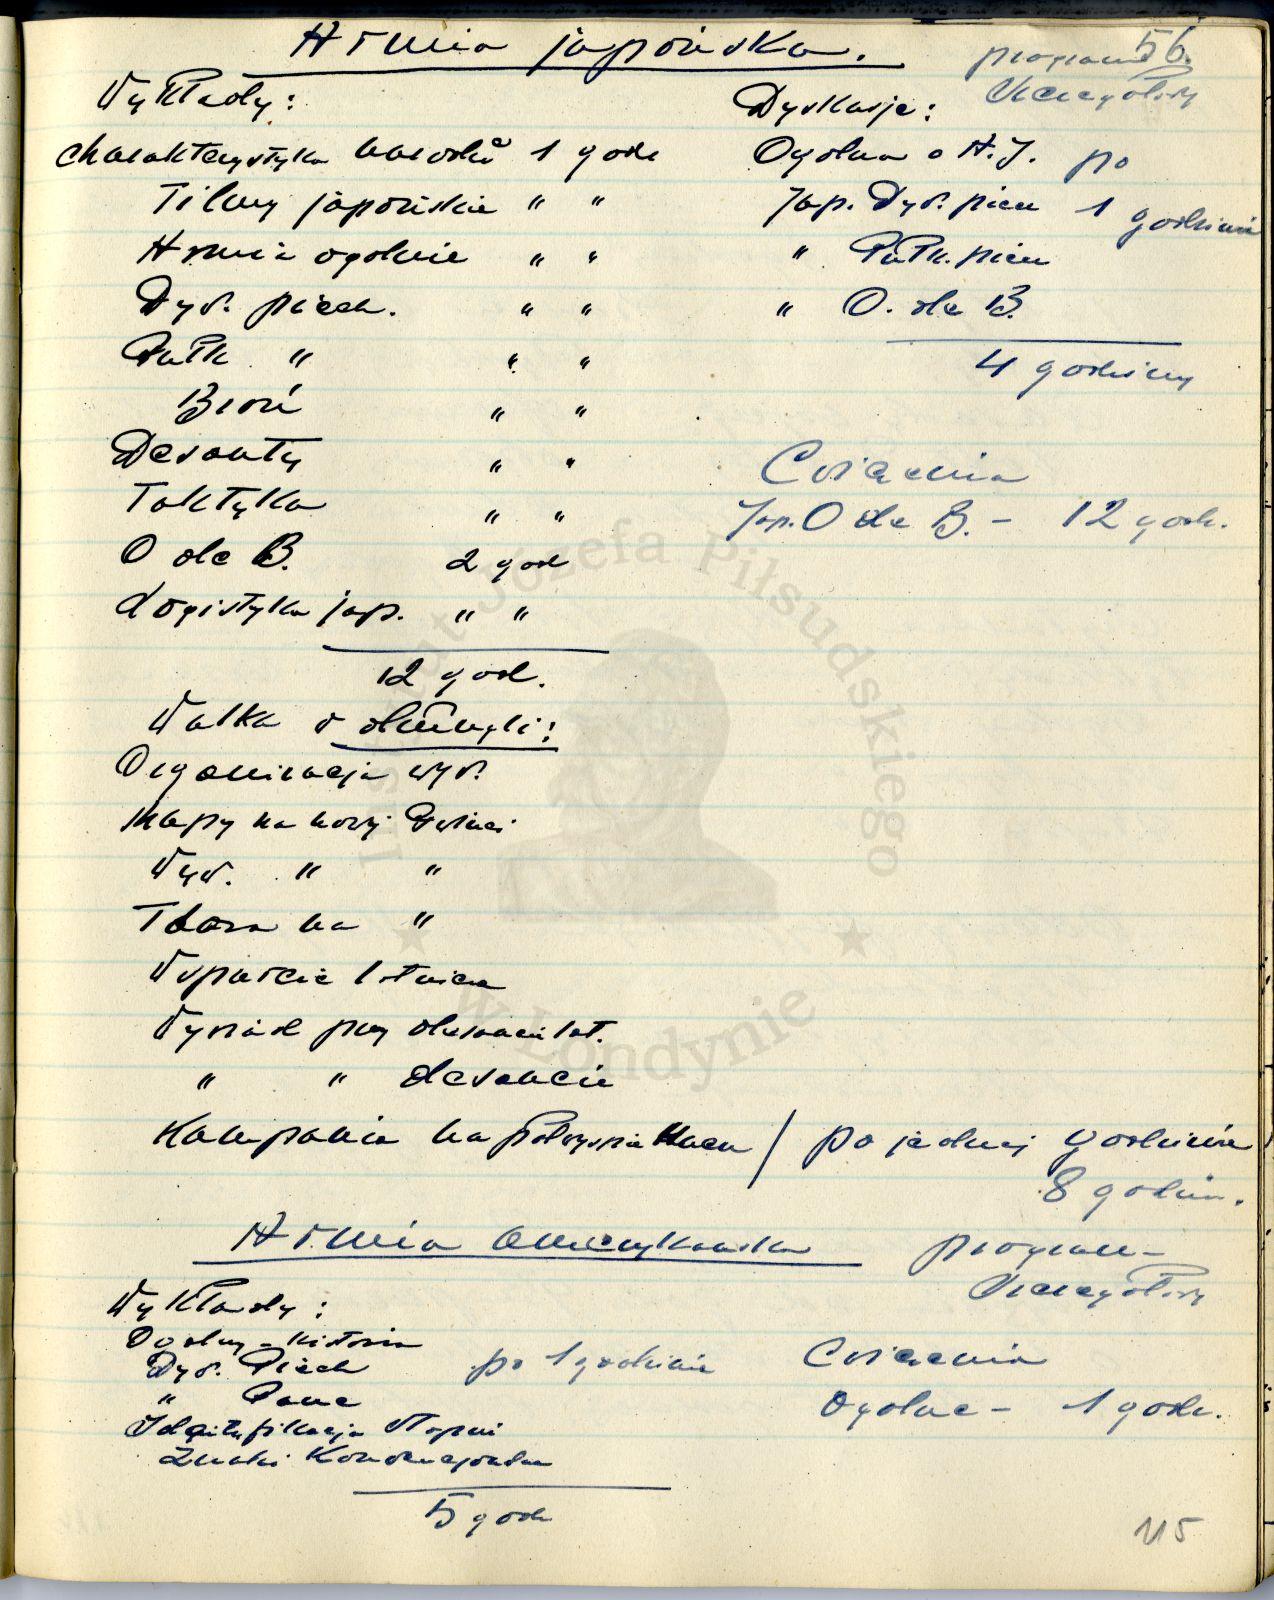 56.
Armia japońska.
program
szczegółowy
Wykłady:
charakterystyka narodu 1 godz
Filmy japońskie " "
Armia ogólnie " "
Dyw. piech. " "
Pułk " " "
Broń " "
Desanty " "
Taktyka " "
O de B. 2 god
Logistyka jap. " "
12 god.
Dyskusje:
Ogólna o A.J. po
Jap. Dyw. piech 1 godzinie
" Pułk. piech
" O. de B.
4 godziny
Ćwiczenia
Jap. O de B. - 12 godz.
Walka w dżungli:
Organizacja wyw.
Mapy na nowej Gwinei
Wyw. " "
Tabor na "
Wsparcie lotnicze
Wywiad przy desancie lot.
" " desancie
Kampania na / po jednej godzinie
8 godzin.
Armia amerykańska
program
szczegółowy
Wykłady:
Ogólny - historia
Dyw. Piech po 1 godzinie
" Panc
Identyfikacja stopni
Znaki
5 godz
Ćwiczenia
Ogólne - 1 godz.
115
Instytut Józefa Piłsudskiego
w Londynie